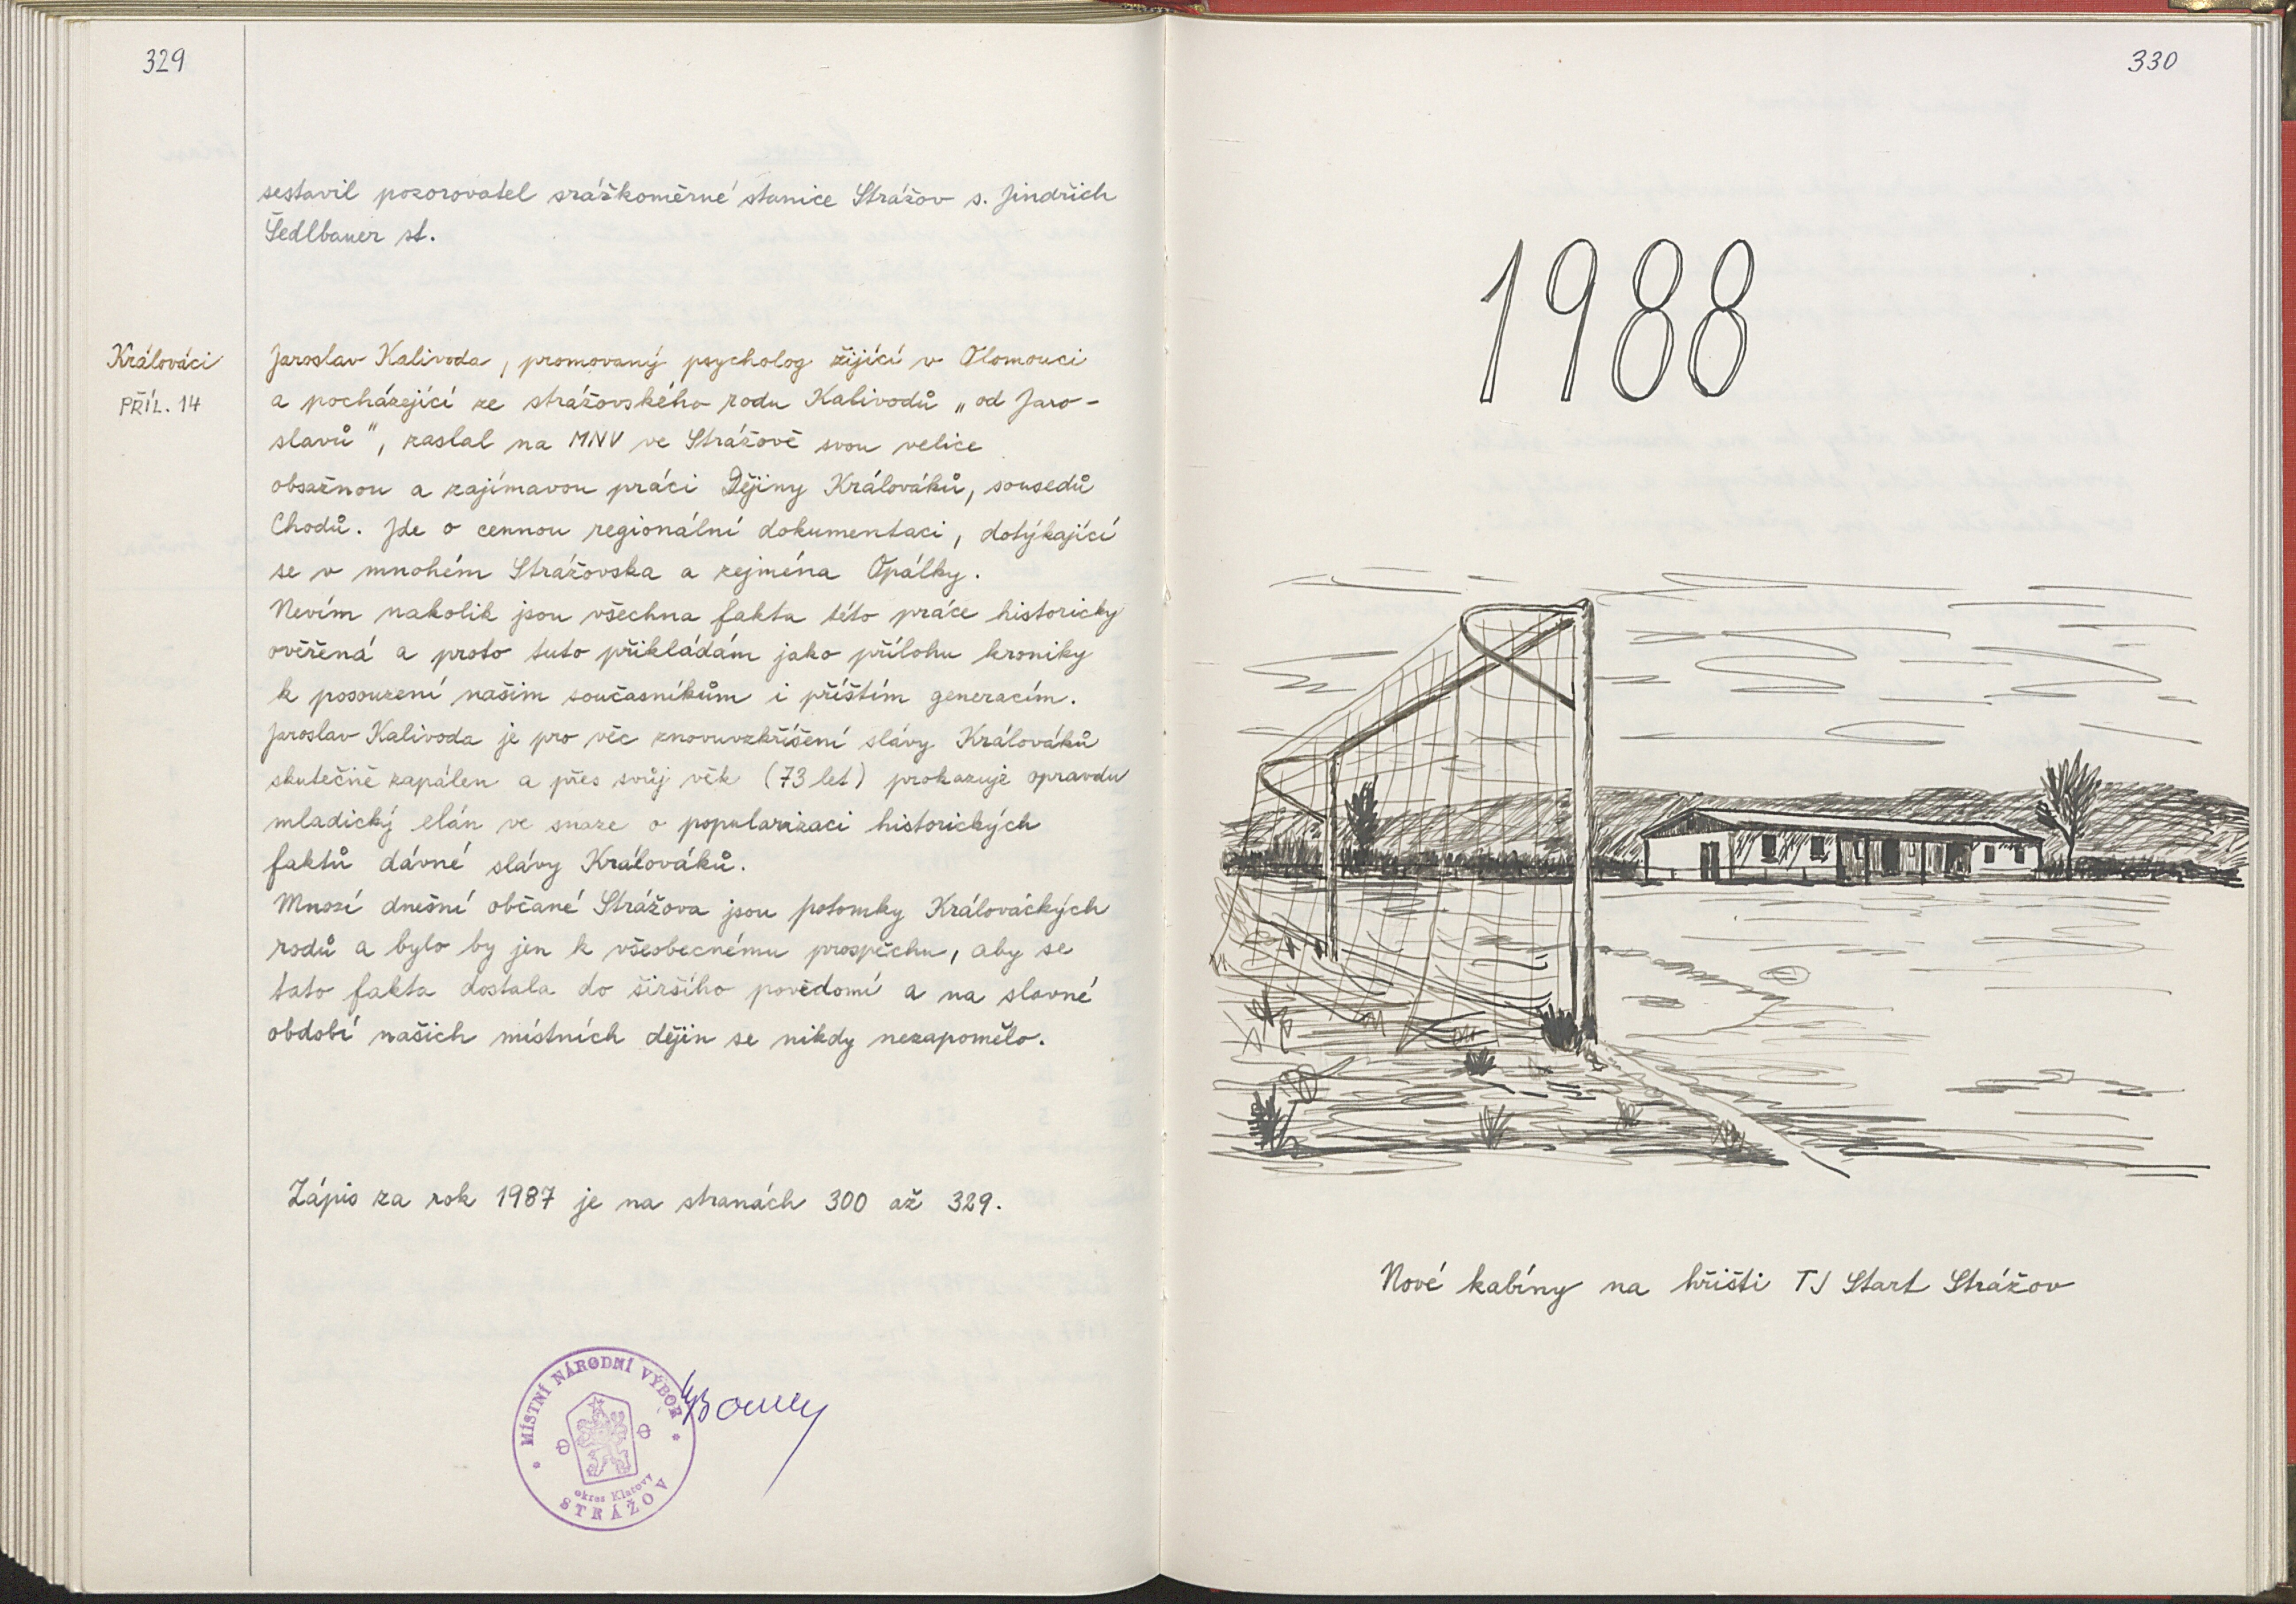 329
sestavil pozorovatel srážkoměrné stanice Strážov s. Jindřich
Šedlbauer st.
Králováci
PŘÍL. 14
Jaroslav Kalivoda, promovaný psycholog žijící v Olomouci
a pocházející ze strážovského rodu Kalivodů „od Jaro-
slavů", zaslal na MNV ve Strážově svou velice
obsažnou a zajímavou práci Dějiny Králováků, sousedů
Chodů. Jde o cennou regionální dokumentaci, dotýkající
se v mnohém Strážovska a zejména Opálky.
Nevím nakolik jsou všechna fakta této práce historicky
ověřená a proto tuto přikládám jako přílohu kroniky
k posouzení našim současníkům i příštím generacím.
Jaroslav Kalivoda je pro věc znovuvzkříšení slávy Králováků
skutečně zapálen a přes svůj věk (73 let) prokazuje opravdu
mladický elán ve snaze o popularizaci historických
faktů dávné slávy Králováků.
Mnozí dnešní občané Strážova jsou potomky Králováckých
rodů a bylo by jen k všeobecnému prospěchu, aby se
tato fakta dostala do širšího povědomí a na slavné
období našich místních dějin se nikdy nezapomělo.
Zápis za rok 1987 je na stranách 300 až 329.
MÍSTNÍ NÁRODNÍ VÝBOR
okres Klatovy
STRÁŽOV
330
1988
Nové kabíny na hřišti TJ Start Strážov